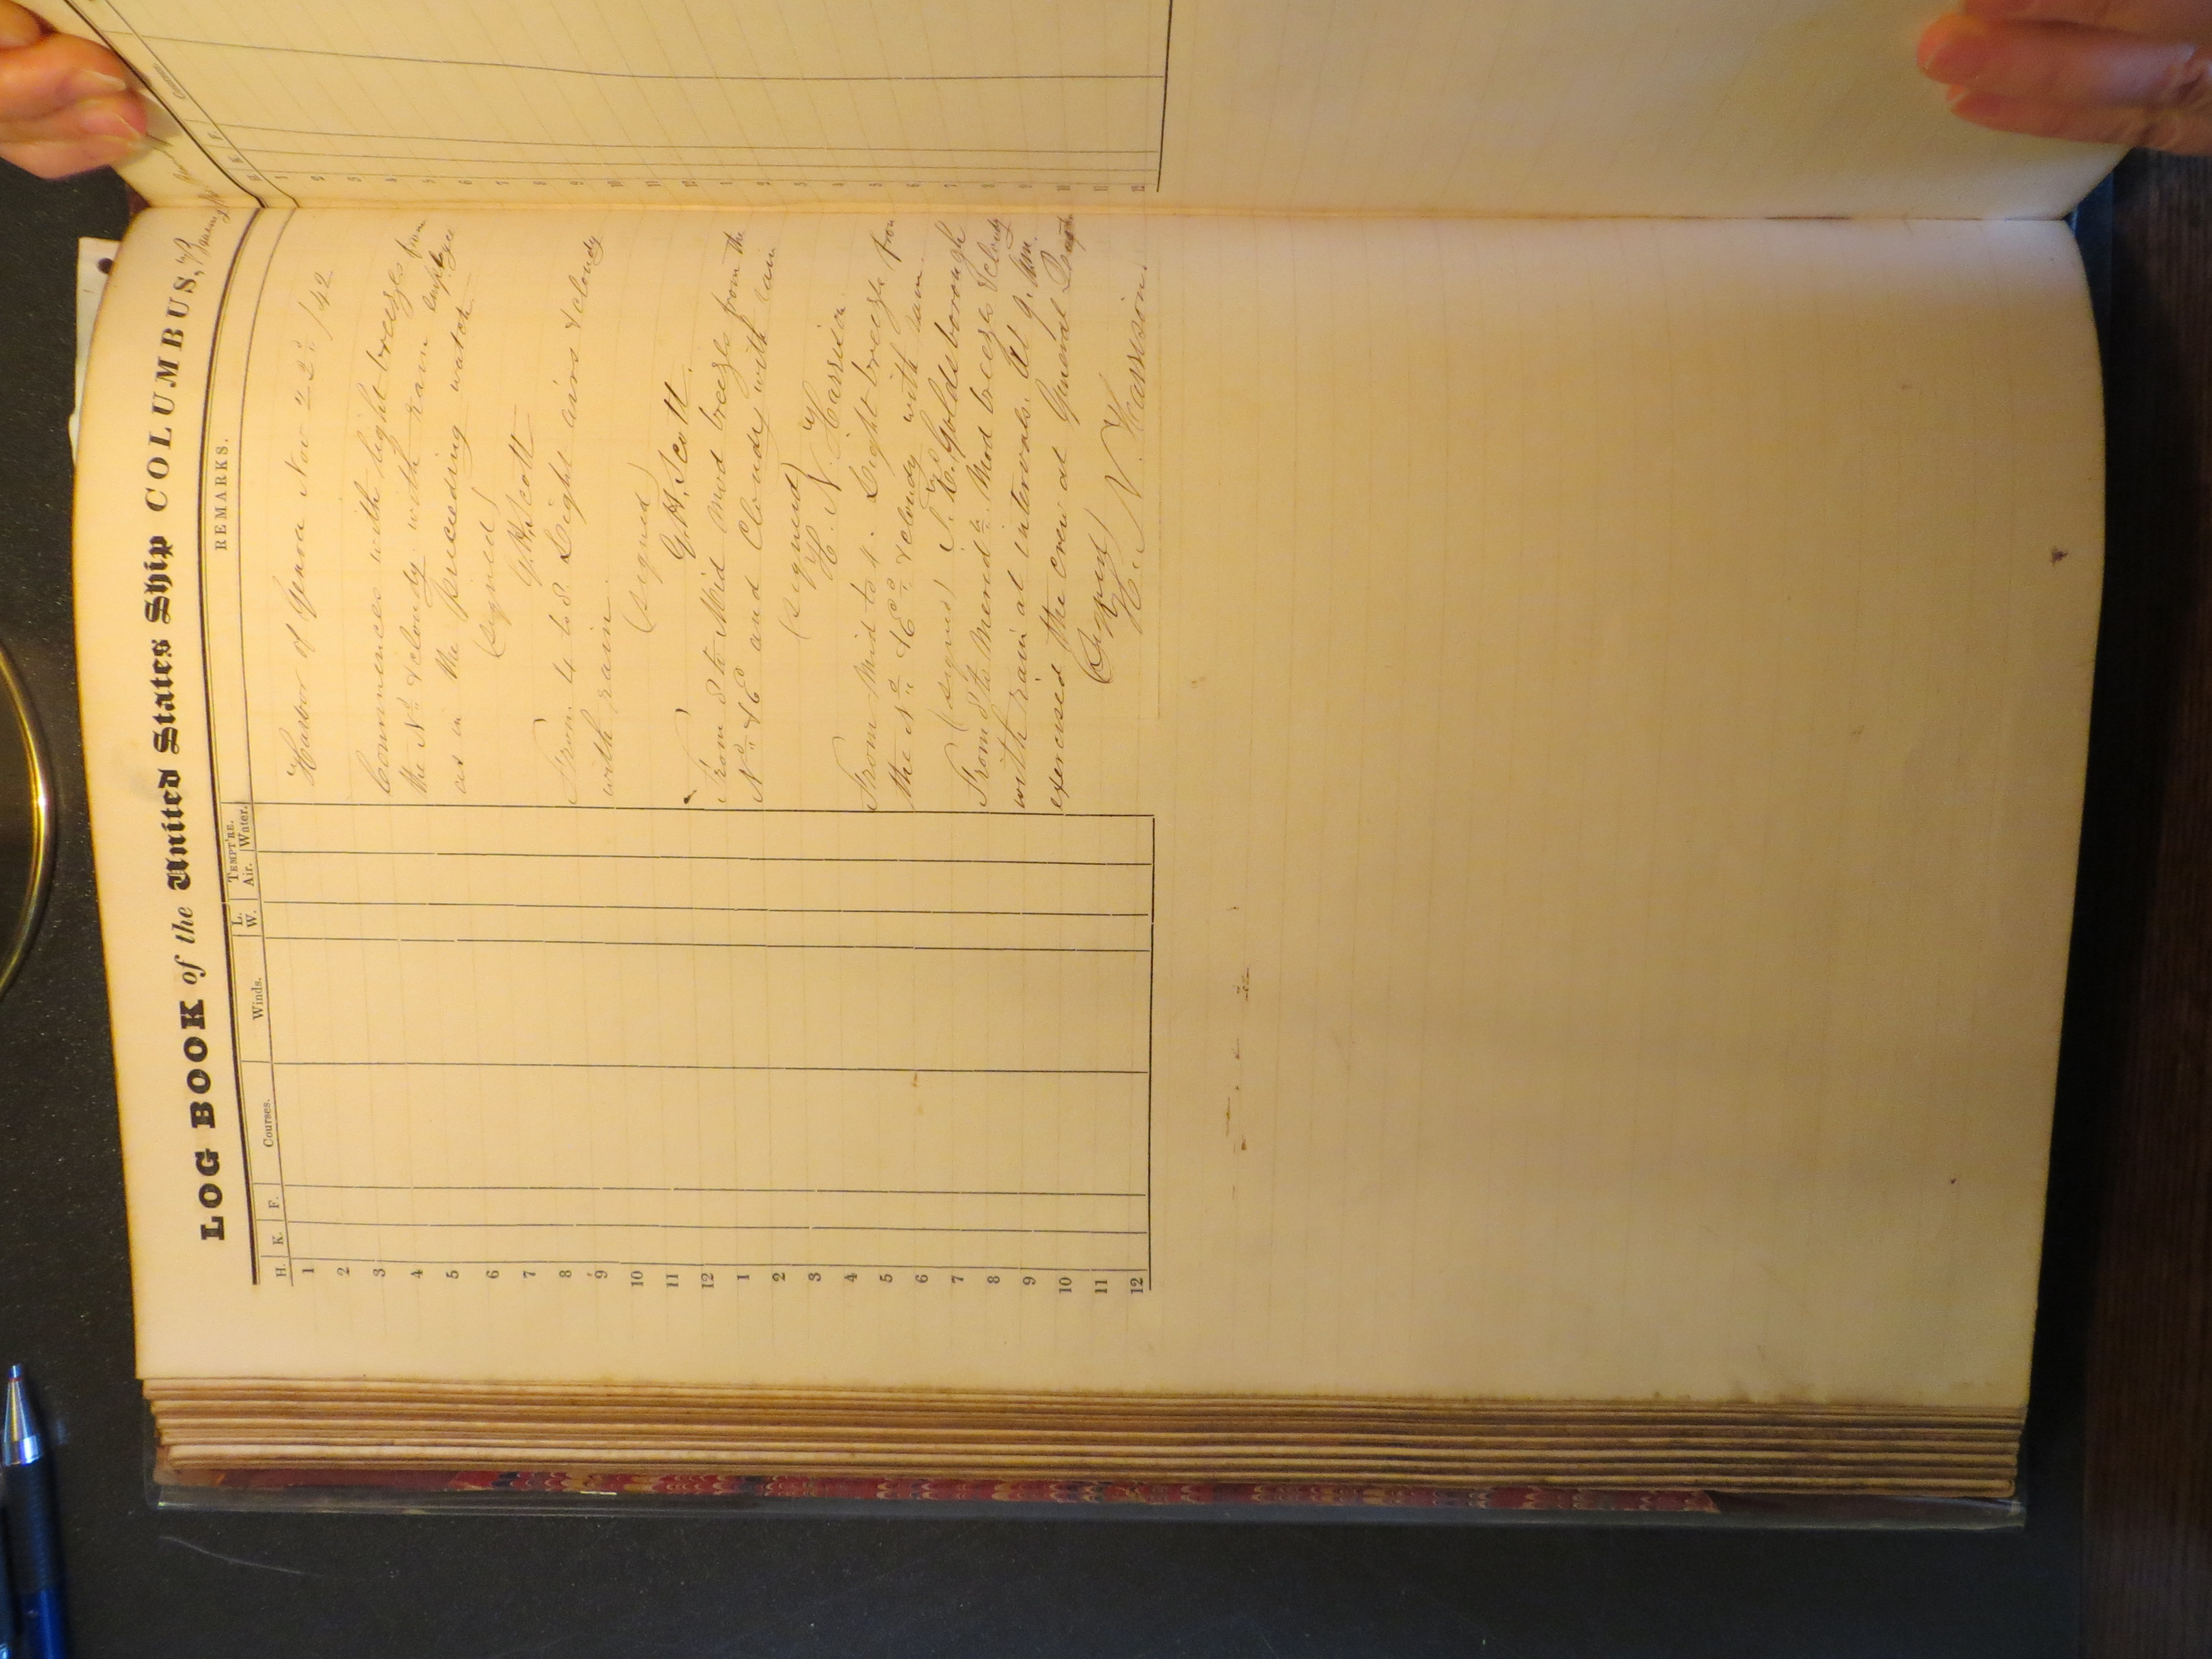 LOG BOOK of the United States Ship COLUMBUS,
H. K. F. Courses. Winds. L. W. TEMPT'RE. Air. Water. REMARKS.
1
2
3
4
5
6
7
8
9
10
11
12
1
2
3
4
5
6
7
8
9
10
11
12
Harbor of Genoa Nov 22d /42
Commences with light breezes from
the Nd & cloudy with rain
as in the preceeding watch
(signed)
G.H. Scott
From 4 to 8 Light airs & cloudy
with rain.
(signed)
G.H. Scott.
From 8 to Mid Mod breezes from the
Nd & Ed and Cloudy with rain
(signed)
H. N. Harrison
From Mid to 4. Light breezes from
the Nd & Ed & cloudy with rain.
(signed) Goldsborough
From 8 to Merid Mod breezes & cloudy
with rain at intervals. At 9.
exercised the crew at General
(Signed)
H. N. Harrison.
H. K. F. Courses.
1
2
3
4
5
6
7
8
9
10
11
12
1
2
3
4
5
6
7
8
9
10
11
12